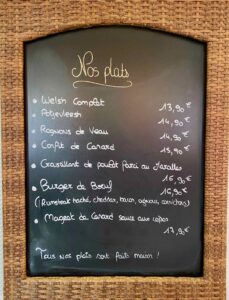 Nos plats
Welsh Complet 13,90€
Potjevleesh 14,90€
Rognons de Veau 14,90€
Confit de Canard 15,90€
Grassillant de poulet farci au Maroilles
16,90€
Burger de Boeuf 16,90€
(Rumsteack haché, cheddar, bacon, oignons, cornichons)
Magret de Canard sauce aux cèpes
17,90€
Tous nos plats sont faits maison !